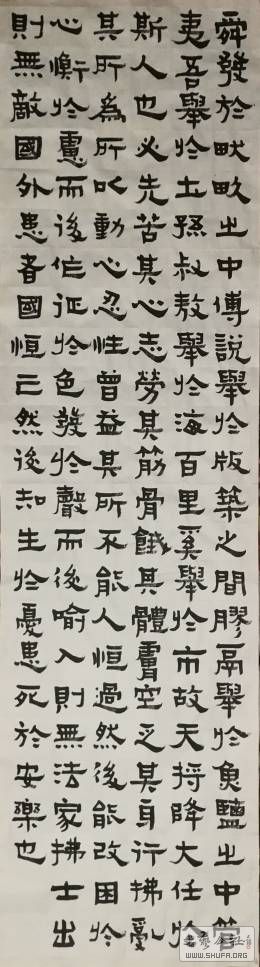 舜發於畎畝之中傅說舉於版築之間膠鬲舉於魚鹽之中管
夷吾舉於士孫叔敖舉於海百里奚舉於市故天將降大任於
斯人也必先苦其心志勞其筋骨餓其體膚空乏其身行拂亂
其所為所以動心忍性曾益其所不能人恒過然後能改困於
心衡於慮而後作征於色發於聲而後喻入則無法家拂士出
則無敵國外患者國恒亡然後知生於憂患死於安樂也
书艺公社
WWW.SHUFA.ORG